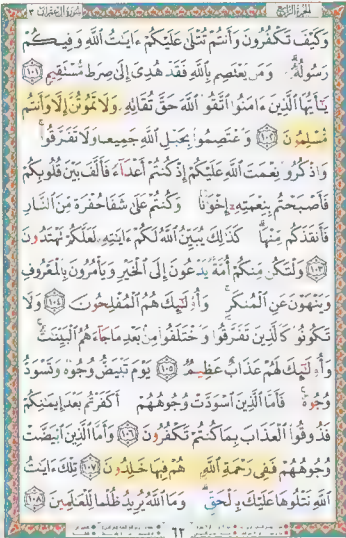 الجزء الرابع سورة آل عمران ٣
وَكَيْفَ تَكْفُرُونَ وَأَنتُمْ تُتْلَى عَلَيْكُمْ ءَايَتُ اللَّهِ وَفِيكُمْ
رَسُولُهُ وَمَن يَعْتَصِم بِاللَّهِ فَقَدْ هُدِىَ إِلَى صِرَطٍ مُّسْتَقِيمٍ ١٠١
يَأَيُّهَا الَّذِينَ ءَامَنُوا اتَّقُوا اللَّهَ حَقَّ تُقَاتِهِ وَلَا تَمُوتُنَّ إِلَّا وَأَنتُم
مُّسْلِمُونَ ١٠٢ وَعْتَصِمُوا بِحَبْلِ اللَّهِ جَمِيعًا وَلَا تَفَرَّقُوا
وَاذْكُرُو نِعْمَتَ اللَّهِ عَلَيْكُمْ إِذْ كُنتُمْ أَعْدَاءً فَأَلَّفَ بَيْنَ قُلُوبِكُمْ
فَأَصْبَحْتُم بِنِعْمَتِهِ إِخْوَنًا وَكُنتُمْ عَلَى شَفَا حُفْرَةٍ مِّنَ النَّارِ
فَأَنقَذَكُم مِّنْهَا كَذَلِكَ يُبَيِّنُ اللَّهُ لَكُمْ ءَايَتِهِ لَعَلَّكُمْ تَهْتَدُونَ
١٠٣ وَلْتَكُن مِّنكُمْ أُمَّةٌ يَدْعُونَ إِلَى الْخَيْرِ وَيَأْمُرُونَ بِالْمَعْرُوفِ
وَيَنْهَوْنَ عَنِ الْمُنكَرِ وَأُوْلَئِكَ هُمُ الْمُفْلِحُونَ ١٠٤ وَلَا
تَكُونُو كَالَّذِينَ تَفَرَّقُوا وَخْتَلَفُوا مِن بَعْدِ مَا جَاءَهُمُ الْبَيِّنَتُ
وَأُوْلَئِكَ لَهُمْ عَذَابٌ عَظِيمٌ ١٠٥ يَوْمَ تَبْيَضُّ وُجُوهٌ وَتَسْوَدُّ
وُجُوهٌ فَأَمَّا الَّذِينَ اسْوَدَّتْ وُجُوهُهُمْ أَكَفَرْتُم بَعْدَ إِيمَنِكُمْ
فَذُوقُوا الْعَذَابَ بِمَا كُنتُمْ تَكْفُرُونَ ١٠٦ وَأَمَّا الَّذِينَ ابْيَضَّتْ
وُجُوهُهُمْ فَفِى رَحْمَةِ اللَّهِ هُمْ فِيهَا خَلِدُونَ ١٠٧ تِلْكَ ءَايَتُ
اللَّهِ نَتْلُوهَا عَلَيْكَ بِالْحَقِّ وَمَا اللَّهُ يُرِيدُ ظُلْمًا لِّلْعَلَمِينَ ١٠٨
٦٣